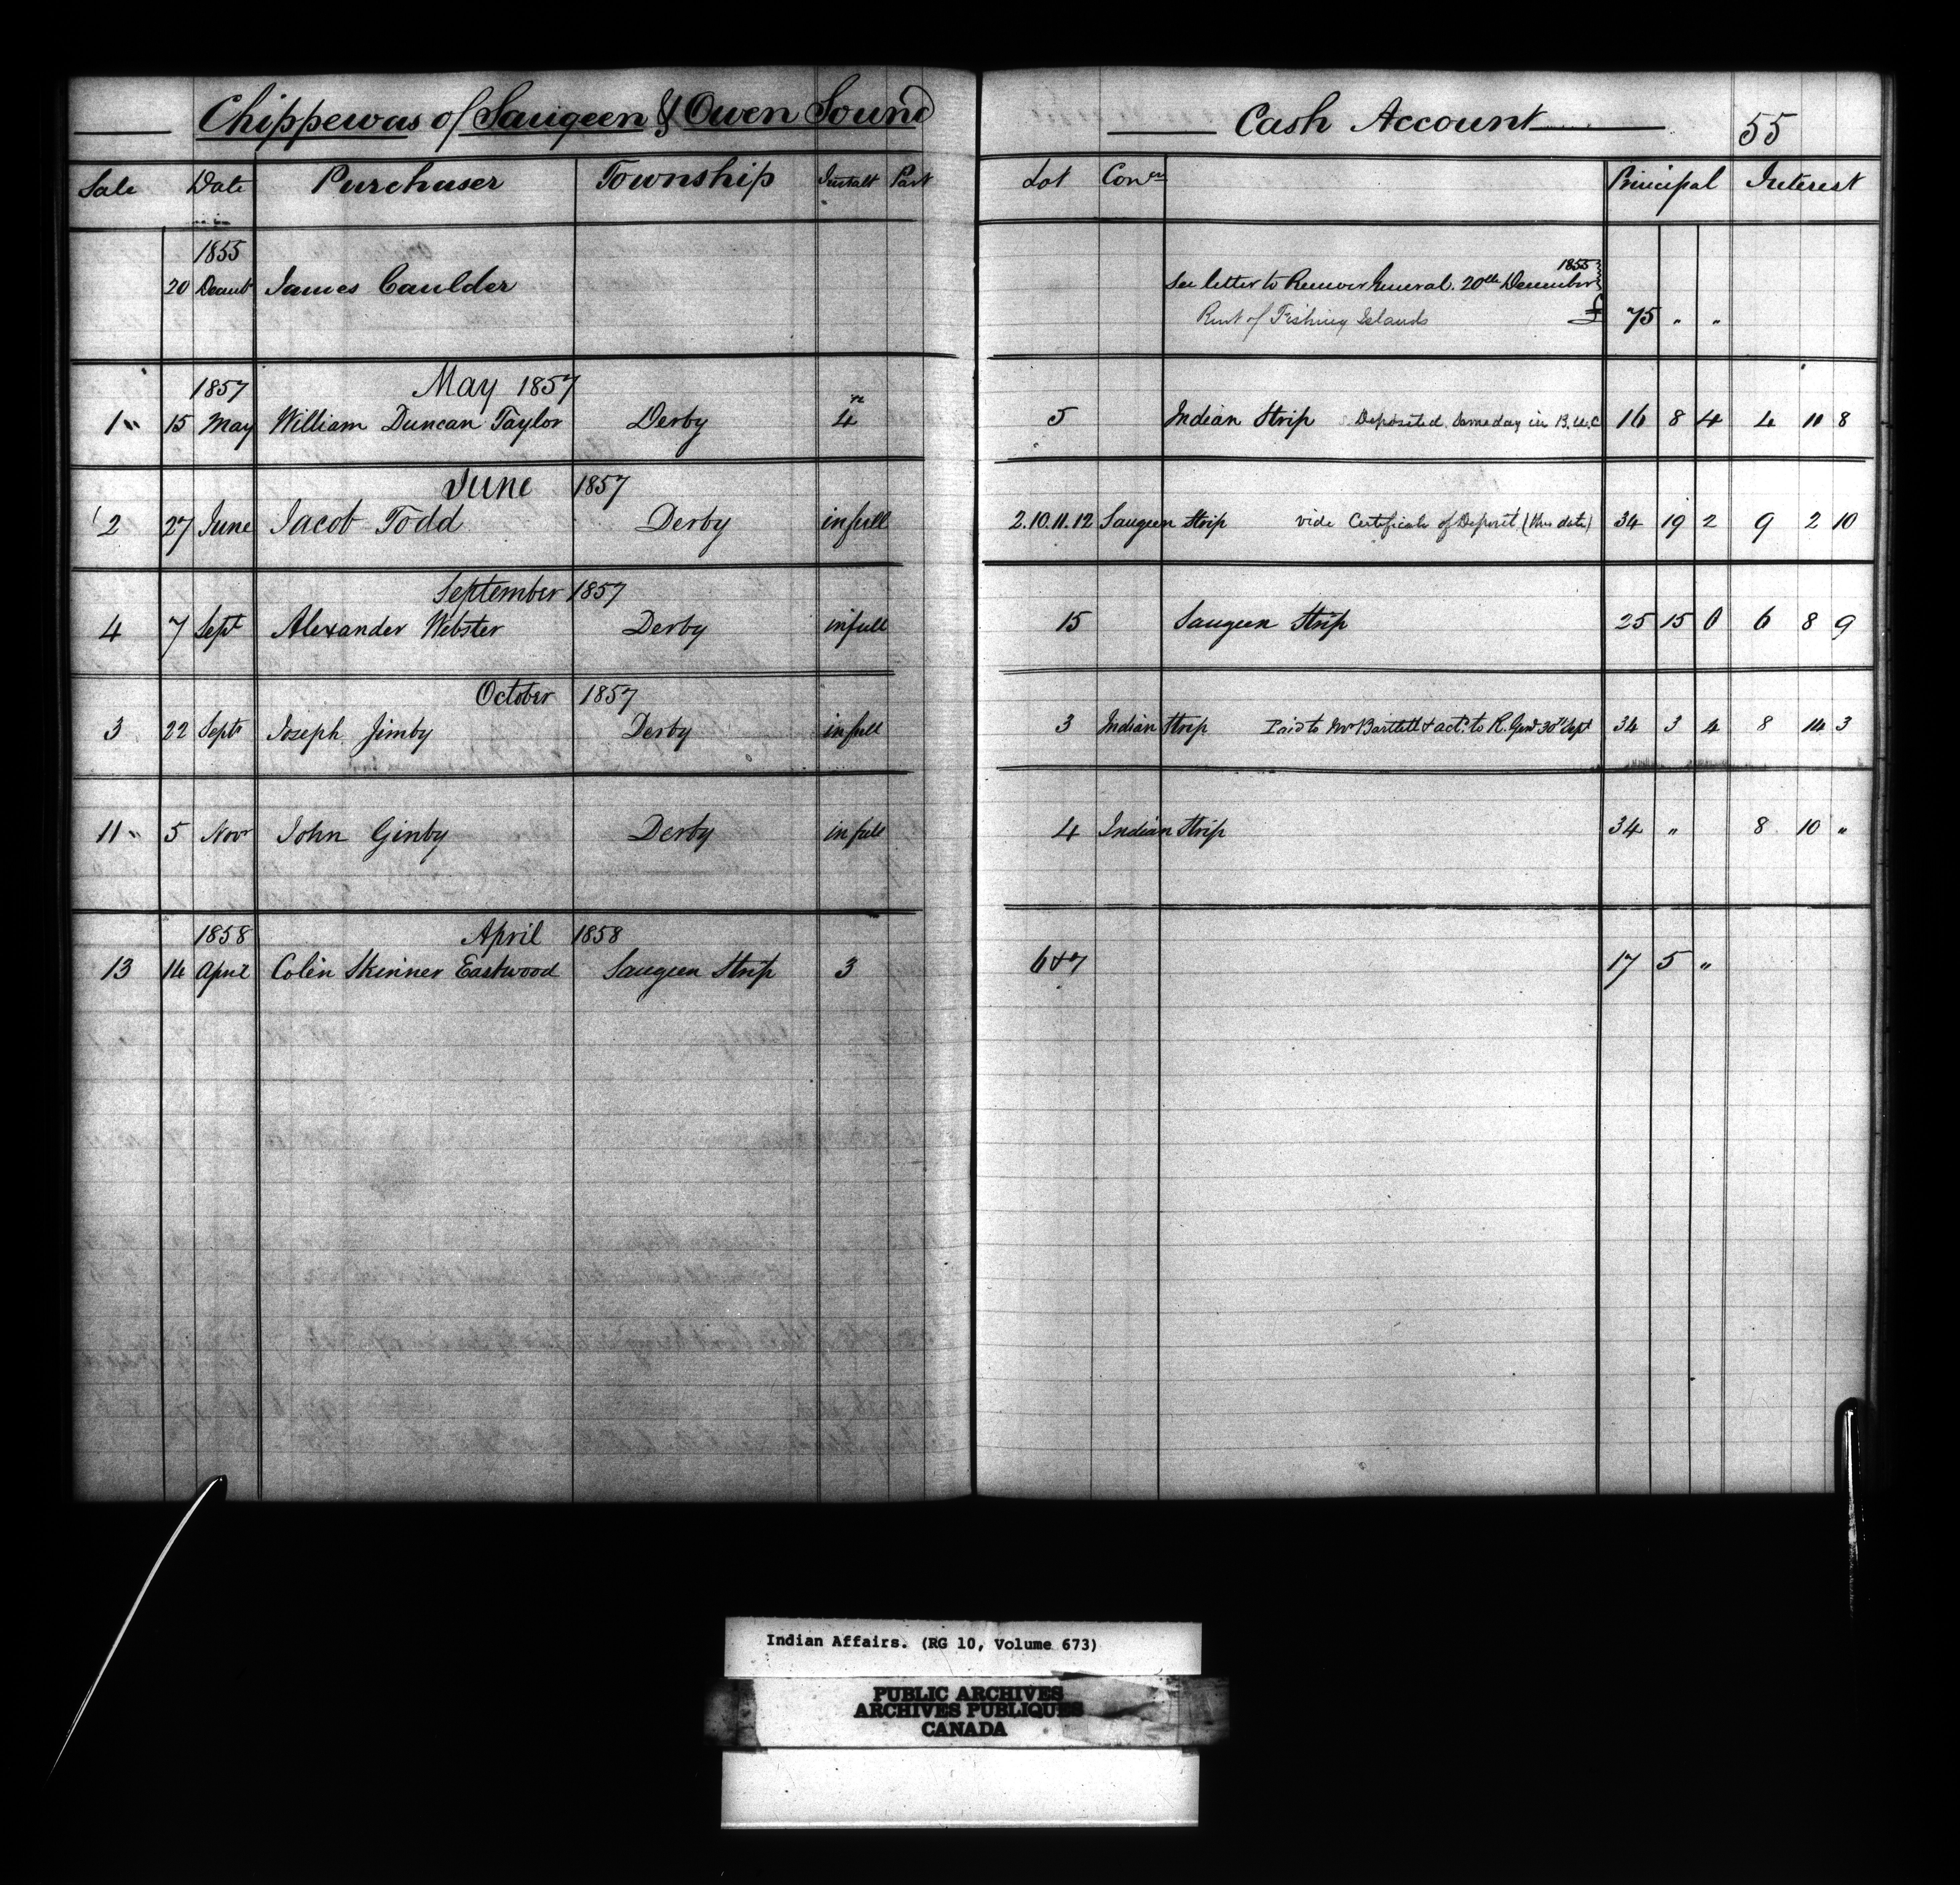 Chippewas of Saugeen & Owen Sound Cash Account 55
Sale Date Purchaser Township Instalt Part Lot Conⁿ Principal Interest
1855 1855
20 Decemb James Caulder See letter to Receiver General. 20th December
Rent of Fishing Islands £ 75 " "
1857 May 1857
1 " 15 May William Duncan Taylor Derby 4 5 Indian Strip Deposited same day in B.U.C 16 8 4 4 11 8
June 1857
2 27 June Jacob Todd Derby in full 2.10.11.12 Saugeen Strip vide Certificate of Deposit (this date) 34 19 2 9 2 10
September 1857
4 7 Sept Alexander Webster Derby in full 15 Saugeen Strip 25 15 0 6 8 9
October 1857
3 22 Septr Joseph Jimby Derby in full 3 Indian Strip Paid to Mr Bartlett & actd to R. Genl 30th Sept 34 3 4 8 14 3
11 " 5 Novr John Ginby Derby in full 4 Indian Strip 34 " 8 10 "
1858 April 1858
13 14 April Colin Skinner Eastwood Saugeen Strip 3 6 & 7 17 5 "
Indian Affairs. (RG 10, Volume 673)
PUBLIC ARCHIVES
ARCHIVES PUBLIQUES
CANADA